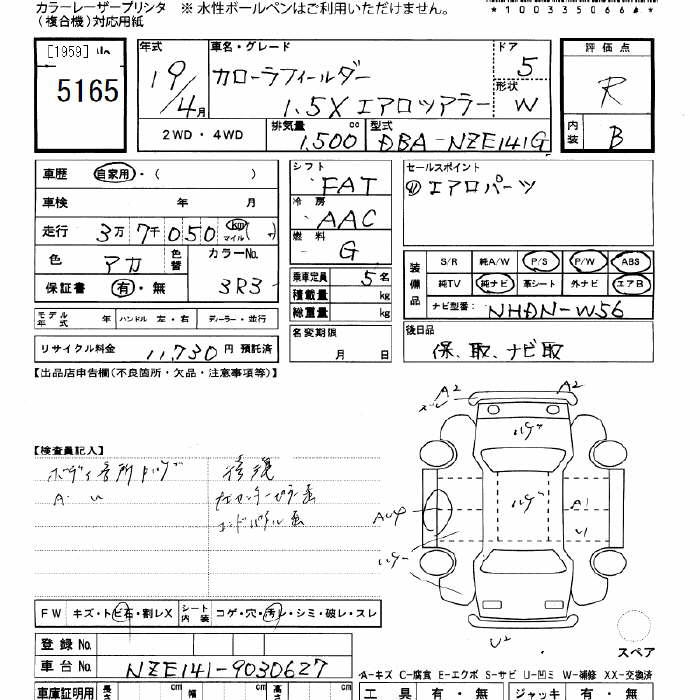 カラーレーザープリンタ ※ 水性ボールペンはご利用いただけません。
(複合機)対応用紙
*100335066#*
[1959]
5165
年式 車名・グレード ドア
19/4月 カローラフィールダー 5
形状
1.5X エアロツアラー W
2WD・4WD 排気量 1,500 cc 型式 DBA-NZE141G
評価点
R
内装 B
車歴 自家用・( )
車検 年 月
走行 3万7千050 km マイル
色 アカ 色替 カラーNo. 3R3
保証書 有・無
モデル年式 年 ハンドル 左・右 ディーラー・並行
リサイクル料金 11,730 円 預託済
シフト FAT
冷房 AAC
燃料 G
乗車定員 5名
積載量 kg
総重量 kg
名変期限
月 日
セールスポイント
エアロパーツ
装備品 S/R 純A/W P/S P/W ABS
純TV 純ナビ 革シート 外ナビ エアB
ナビ型番: NHDN-W56
後日品
保、取、ナビ取
【出品店申告欄(不良箇所・欠品・注意事項等)】
【検査員記入】
A2
A2
ハゲ
ハゲ
A1
U1
ハゲ
U2
スペア
FW キズ・トビ石・割レX シート内装 コゲ・穴・汚レ・シミ・破レ・スレ
登録No.
車台No. NZE141-9030627
A-キズ C-腐食 E-エクボ S-サビ U-凹ミ W-補修 XX-交換済
車庫証明用 長さ cm 幅 cm 高さ cm
工具 有・無 ジャッキ 有・無